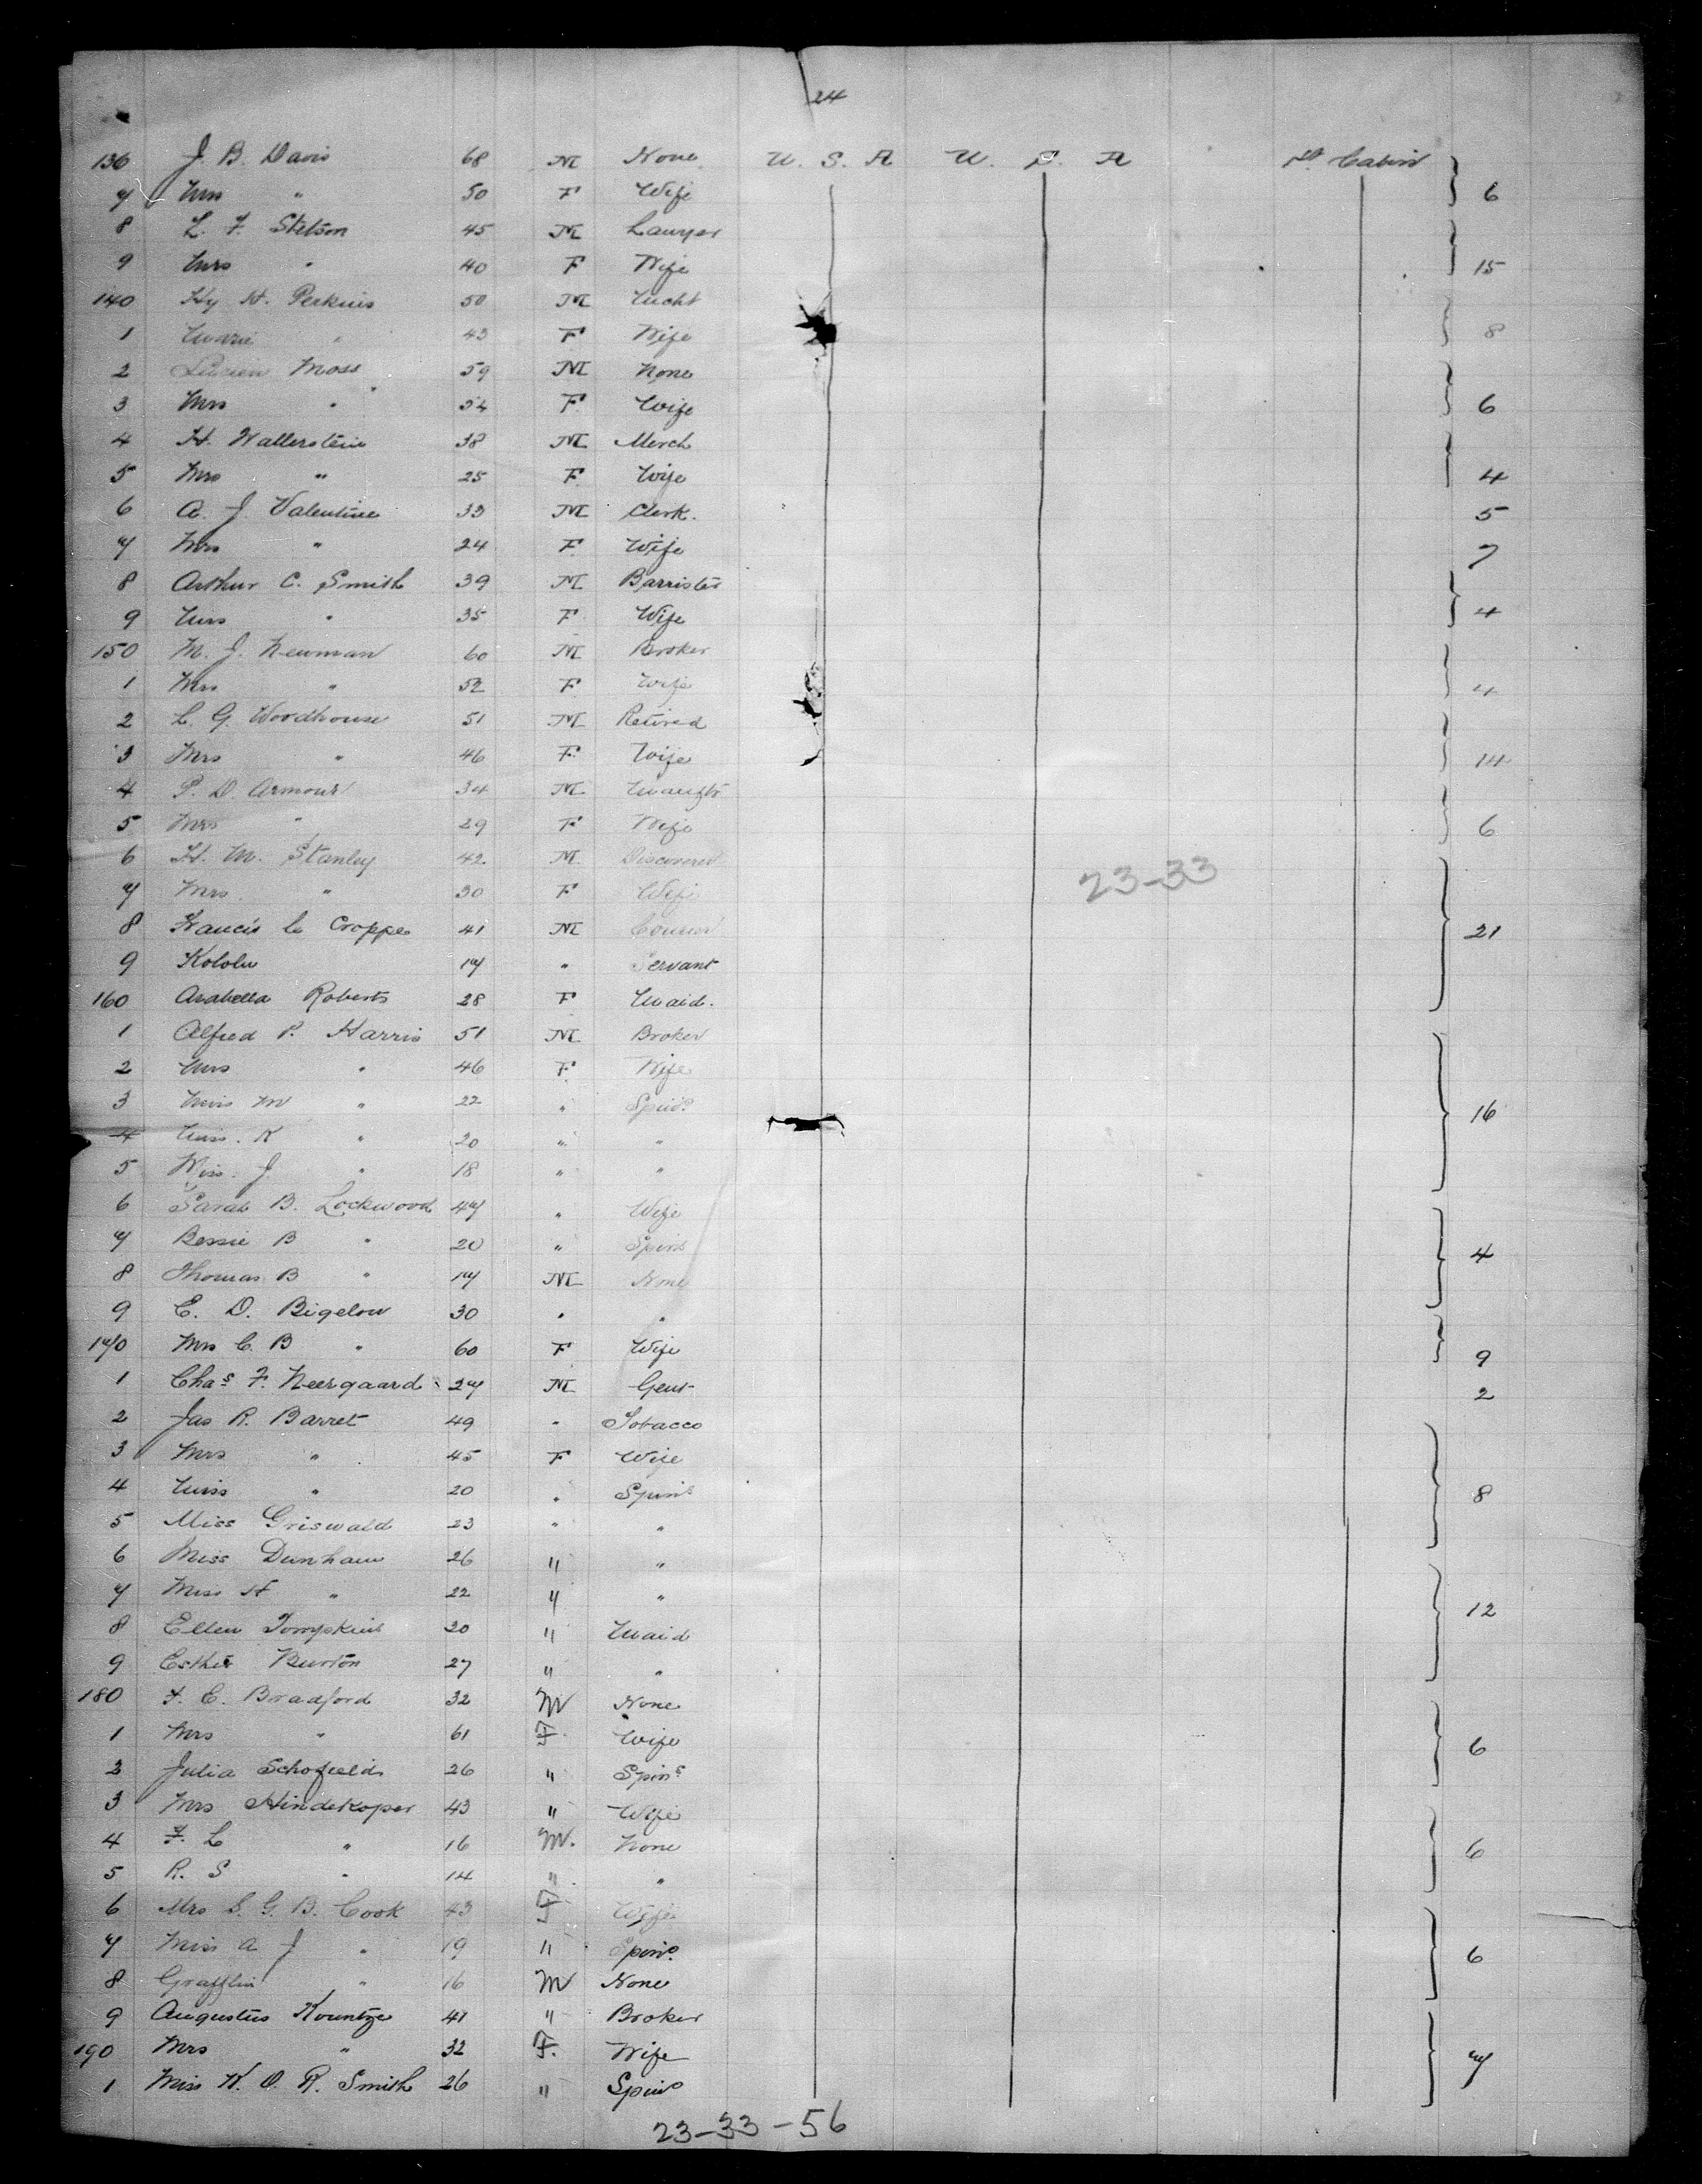 24
136 J. B. Davis 68 M None U. S. A U. S. A 1st Cabin
7 Mrs " 50 F Wife 6
8 L. F. Stetson 45 M Lawyer
9 Mrs " 40 F Wife 15
140 Hy H. Perkins 50 M
1 Marie " 43 F Wife 8
2 Lucien Moss 59 M None
3 Mrs " 54 F Wife 6
4 H. Wallerstein 38 M Merch
5 Mrs " 25 F Wife 4
6 A. J. Valentine 33 M Clerk. 5
7 Mrs " 24 F Wife 7
8 Arthur C. Smith 39 M Barrister
9 Mrs " 35 F Wife 4
150 M. J. Newman 60 M Broker
1 Mrs " 52 F Wife 4
2 L. G. Woodhouse 51 M Retired
3 Mrs " 46 F Wife 14
4 P. D. Armour 34 M
5 Mrs " 29 F Wife 6
6 H. M. Stanley 42 M Discoverer
7 Mrs " 30 F Wife 23-33
8 Francis le Croppe 41 M Courier 21
9 Kololu 17 " Servant
160 Arabella Roberts 28 F Maid.
1 Alfred P. Harris 51 M Broker
2 Mrs " 46 F Wife
3 Miss M " 22 " Spinr 16
4 Miss. K " 20 " "
5 Miss. J. " 18 " "
6 Sarah B. Lockwood 47 " Wife
7 Bessie B " 20 " Spins 4
8 Thomas B " 17 M None
9 E. D. Bigelow 30 " "
170 Mrs C. B " 60 F Wife 9
1 Chas F. Neergaard 27 M Gent 2
2 Jas R. Barret 49 " Tobacco
3 Mrs " 45 F Wife
4 Miss " 20 " Spins 8
5 Miss Griswald 23 " "
6 Miss Dunham 26 " "
7 Miss H " 22 " " 12
8 Ellen Tompkins 20 " Maid
9 Esther Burton 27 " "
180 F. E. Bradford 32 M None
1 Mrs " 61 F. Wife 6
2 Julia Schofield 26 " Spins
3 Mrs Hindekoper 43 " Wife
4 F. L " 16 M. None 6
5 R. S " 14 " "
6 Mrs S. G. B. Cook 43 F Wife
7 Miss A J " 19 " Spinr 6
8 Grafflin " 16 M None
9 Augustus Kountze 41 " Broker
190 Mrs " 32 F. Wife 7
1 Miss K. O. R. Smith 26 " Spinr
23-33-56